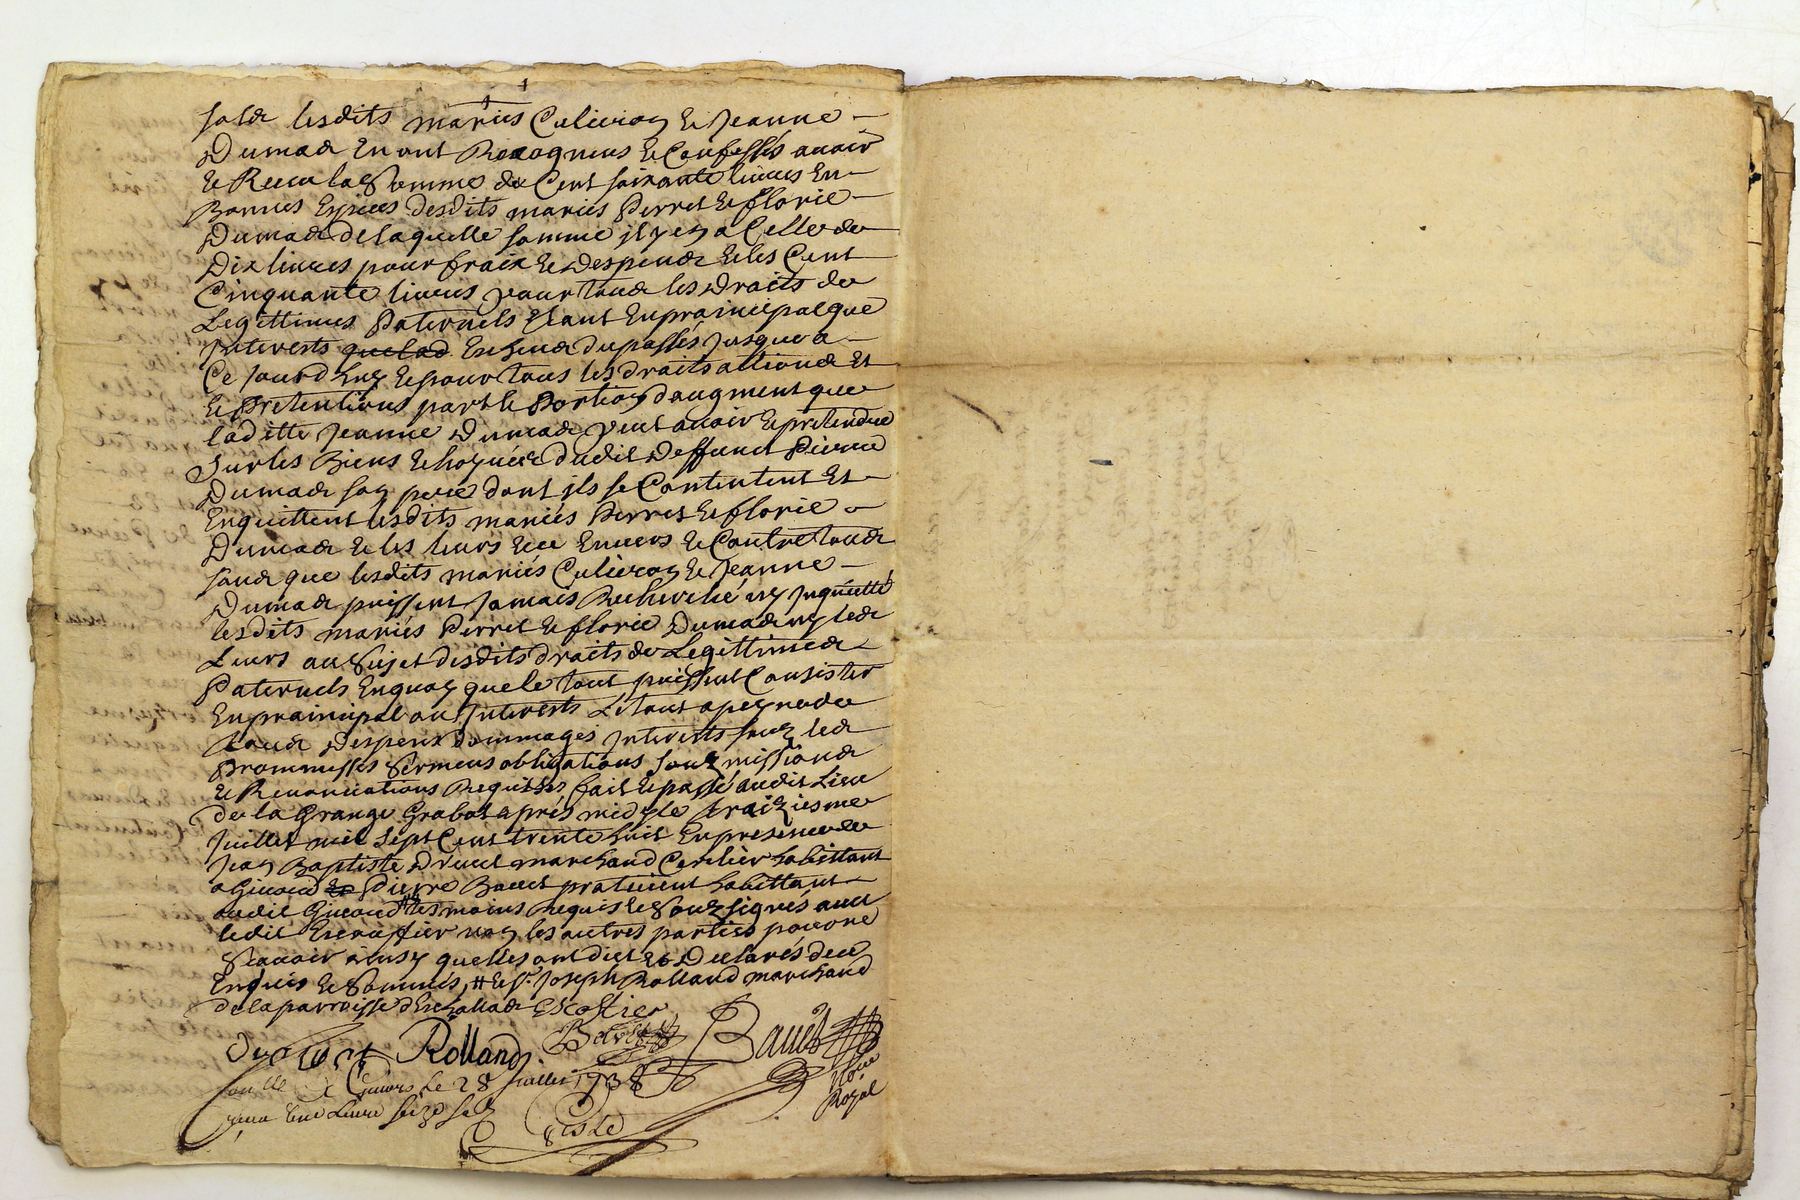 lesdits mariés Culieron & Jeanne
Dumas En ont Recogneus & Confessés avoir
& Receu la Somme de Cent soixante livres En
Bonnes Espices desdits mariés Perret & florie
Dumas de laquelle somme il y en a Celle de
Dix livres pour fraix & despends & les Cent
Cinquante livres pour tous les droits de
Legittimes Paternels tant En principal que
Interests Escheus du passés Jusques a
Ce Jourd'huy & pour tous les droits actions Et
& Prétentions part & Portion d'augment que
laditte Jeanne Dumas peut avoir & prétendre
Sur les Biens & hoyries dudit deffunt Pierre
Dumas son pere dont ils se Contentent Et
Enquittent lesdits mariés Perret & florie
Dumas & les leurs Envers & Contre tous
sans que lesdits mariés Culieron & Jeanne
Dumas puissent Jamais Recherché ny Inquietté
lesdits mariés Perret & florie Dumas ny les
Leurs au Sujet desdits droits de Legittimes
Paternels Enquoy que le tout puissent Consister
En principal ou Interests Le tout a peyne de
tous despens dommages Interests souz les
Prommesses Sermens obligations souzmissions
& Renonciations Requises fait & passé audit Lieu
de la Grange Grabot après midy le traiziesme
Juillet mil Sept Cent trente huit En presence de
Jean Baptiste marchand habittant
a Givors Pierre Bauet praticient habittant
audit Givors tesmoins Requis & Souzsignés avec
ledit Escoffier non les autres parties pour ne
Scavoir ainsy quelles ont dict & Declarés de ce
Enquis & Sommés, # & Sr. Joseph Rolland marchand
de la parroisse d'Eschallas Escoffier
Rolland Bauet
nore
Royal
Givors le 28 Juillet 1738
Reçu une Livre seize sols